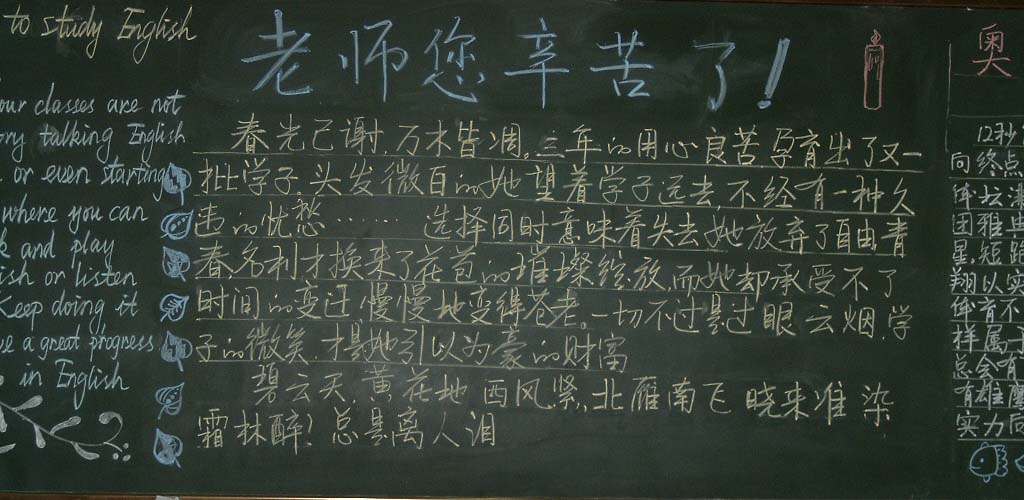 to study English
our classes are not
talking English
or even starting
where you can
and play
or listen
Keep doing it
a great progress
in English
老师您辛苦了!
春光已谢,万木皆凋,三年的用心良苦孕育出了又一
批学子,头发微白的她望着学子远去,不经有一种久
违的忧愁……… 选择同时意味着失去她放弃了自由,青
春名利才换来了花苞的璀璨绽放,而她却承受不了
时间的变迁,慢慢地变得苍老,一切不过是过眼云烟,学
子的微笑,才是她引以为豪的财富
碧云天,黄花地 西风紧,北雁南飞 晓来谁染
霜林醉?总是离人泪
奥
12秒
向终点
体坛
团雅典
星,短距
翔以实
体育不
样属于
总会
有雄
实力向